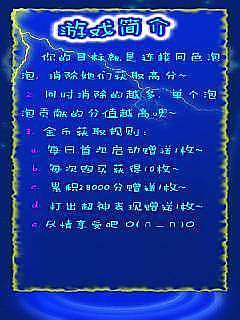 游戏简介
你的目标就是连接同色泡
泡，消除她们获取高分~
2. 同时消除的越多，单个泡
泡贡献的分值越高哦~
3. 金币获取规则：
a. 每日首次启动赠送1枚~
b. 每次购买获得10枚~
c. 累积28000分赠送1枚~
d. 打出超神表现赠送1枚~
e. 尽情享受吧 O(∩_∩)O